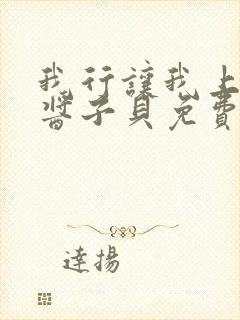 我行讓我上
醬子貝免費
達揚